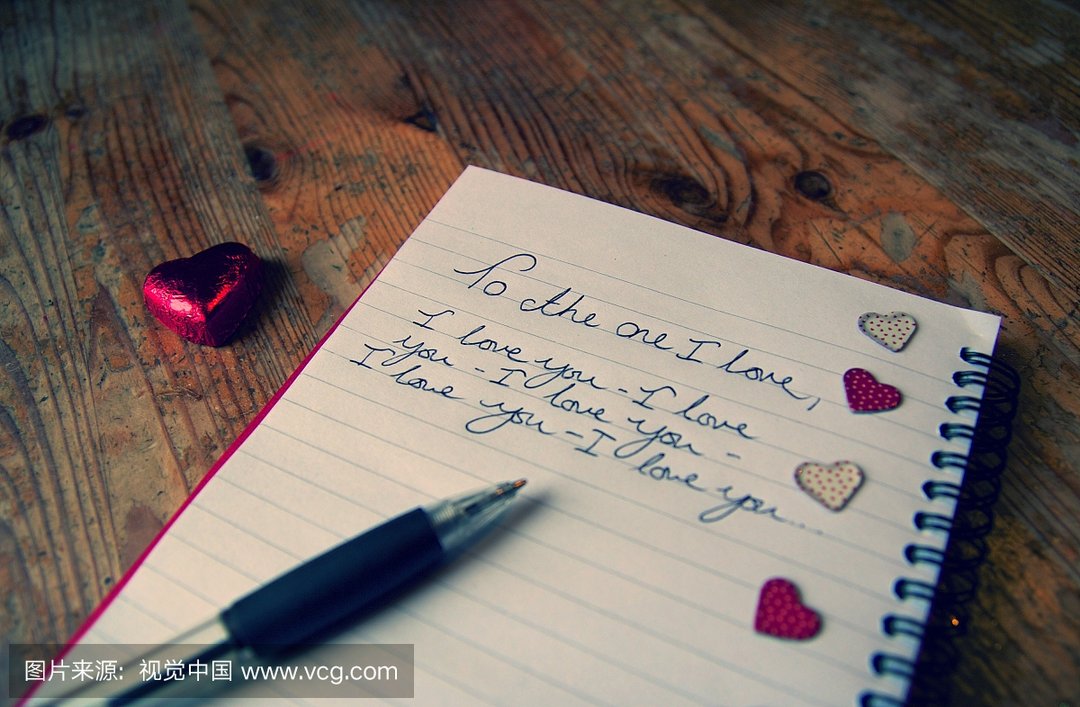 To the one I love,
I love you - I love
you - I love you -
I love you - I love you....
图片来源: 视觉中国 www.vcg.com